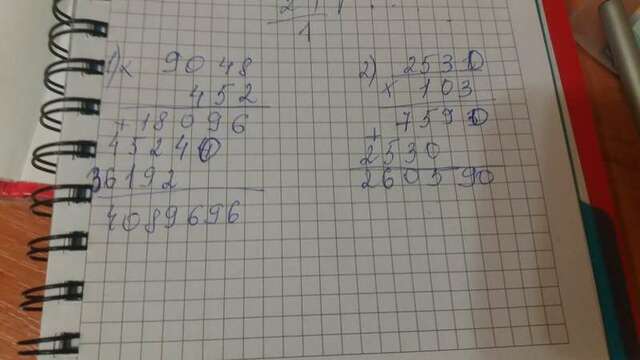 1) × 9048
452
+ 18096
45240
36192
4089696
2) 2530
× 103
+ 7590
2530
260590